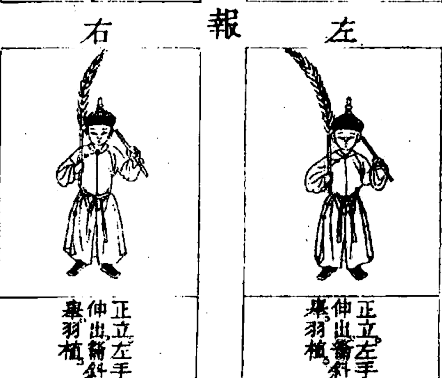 報
左
右
正立左手
伸出籥斜
舉羽植
正立左手
伸出籥斜
舉羽植